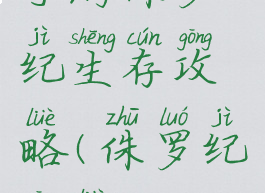 jì shēng cún gōng
纪生存攻
lüè zhū luó jì
略(侏罗纪